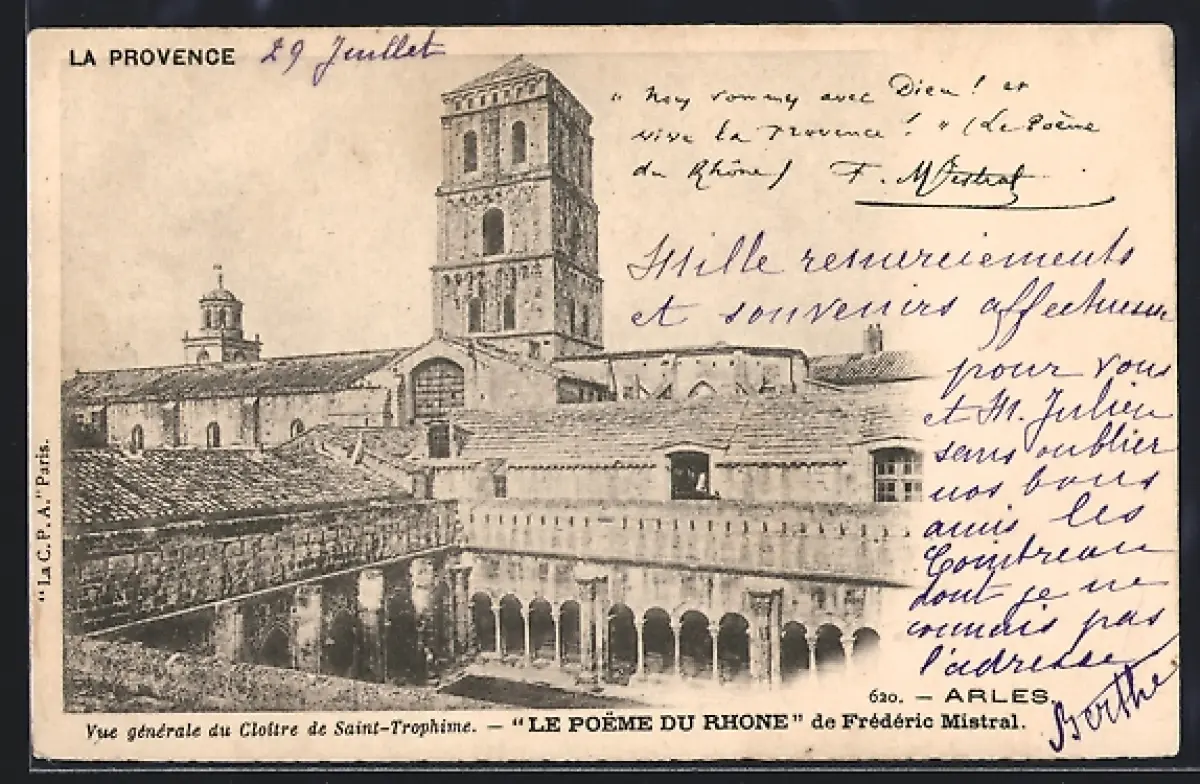 LA PROVENCE
29 Juillet
" Noy rommey avec Dieu ! et
vive la Provence ! " (Le Poème
du Rhône) F. Mistral
Mille remerciements
et souvenirs affectueux
pour vous
et M. Julien
sans oublier
nos bons
amis les
dont je ne
connais pas
l'adresse
Berthe
"La C. P. A." Paris.
620. — ARLES.
Vue générale du Cloître de Saint-Trophime. — "LE POËME DU RHONE" de Frédéric Mistral.